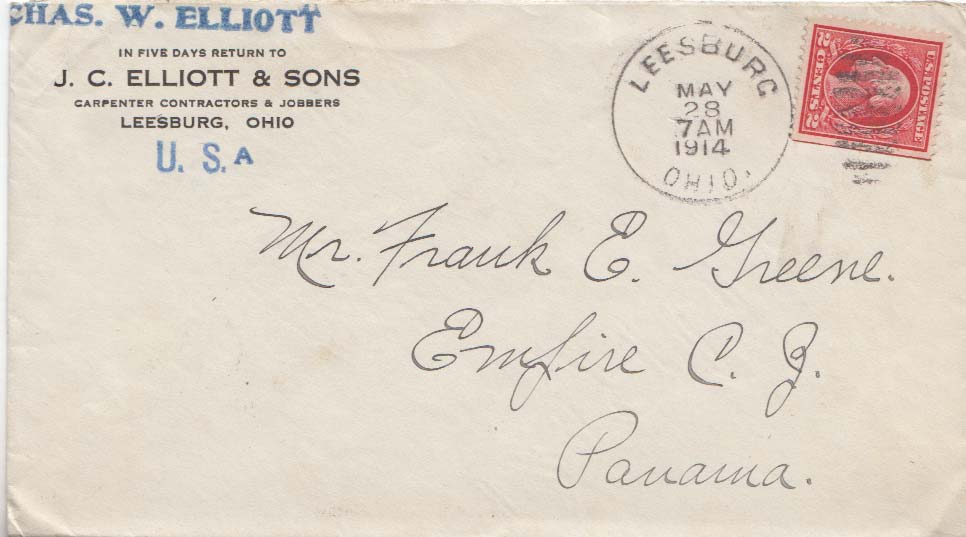 CHAS. W. ELLIOTT
IN FIVE DAYS RETURN TO
J. C. ELLIOTT & SONS
CARPENTER CONTRACTORS & JOBBERS
LEESBURG, OHIO
U. S. A
LEESBURG
MAY
28
7AM
1914
OHIO.
U.S. POSTAGE
2 CENTS 2
Mr. Frank E. Greene.
Empire C. Z.
Panama.